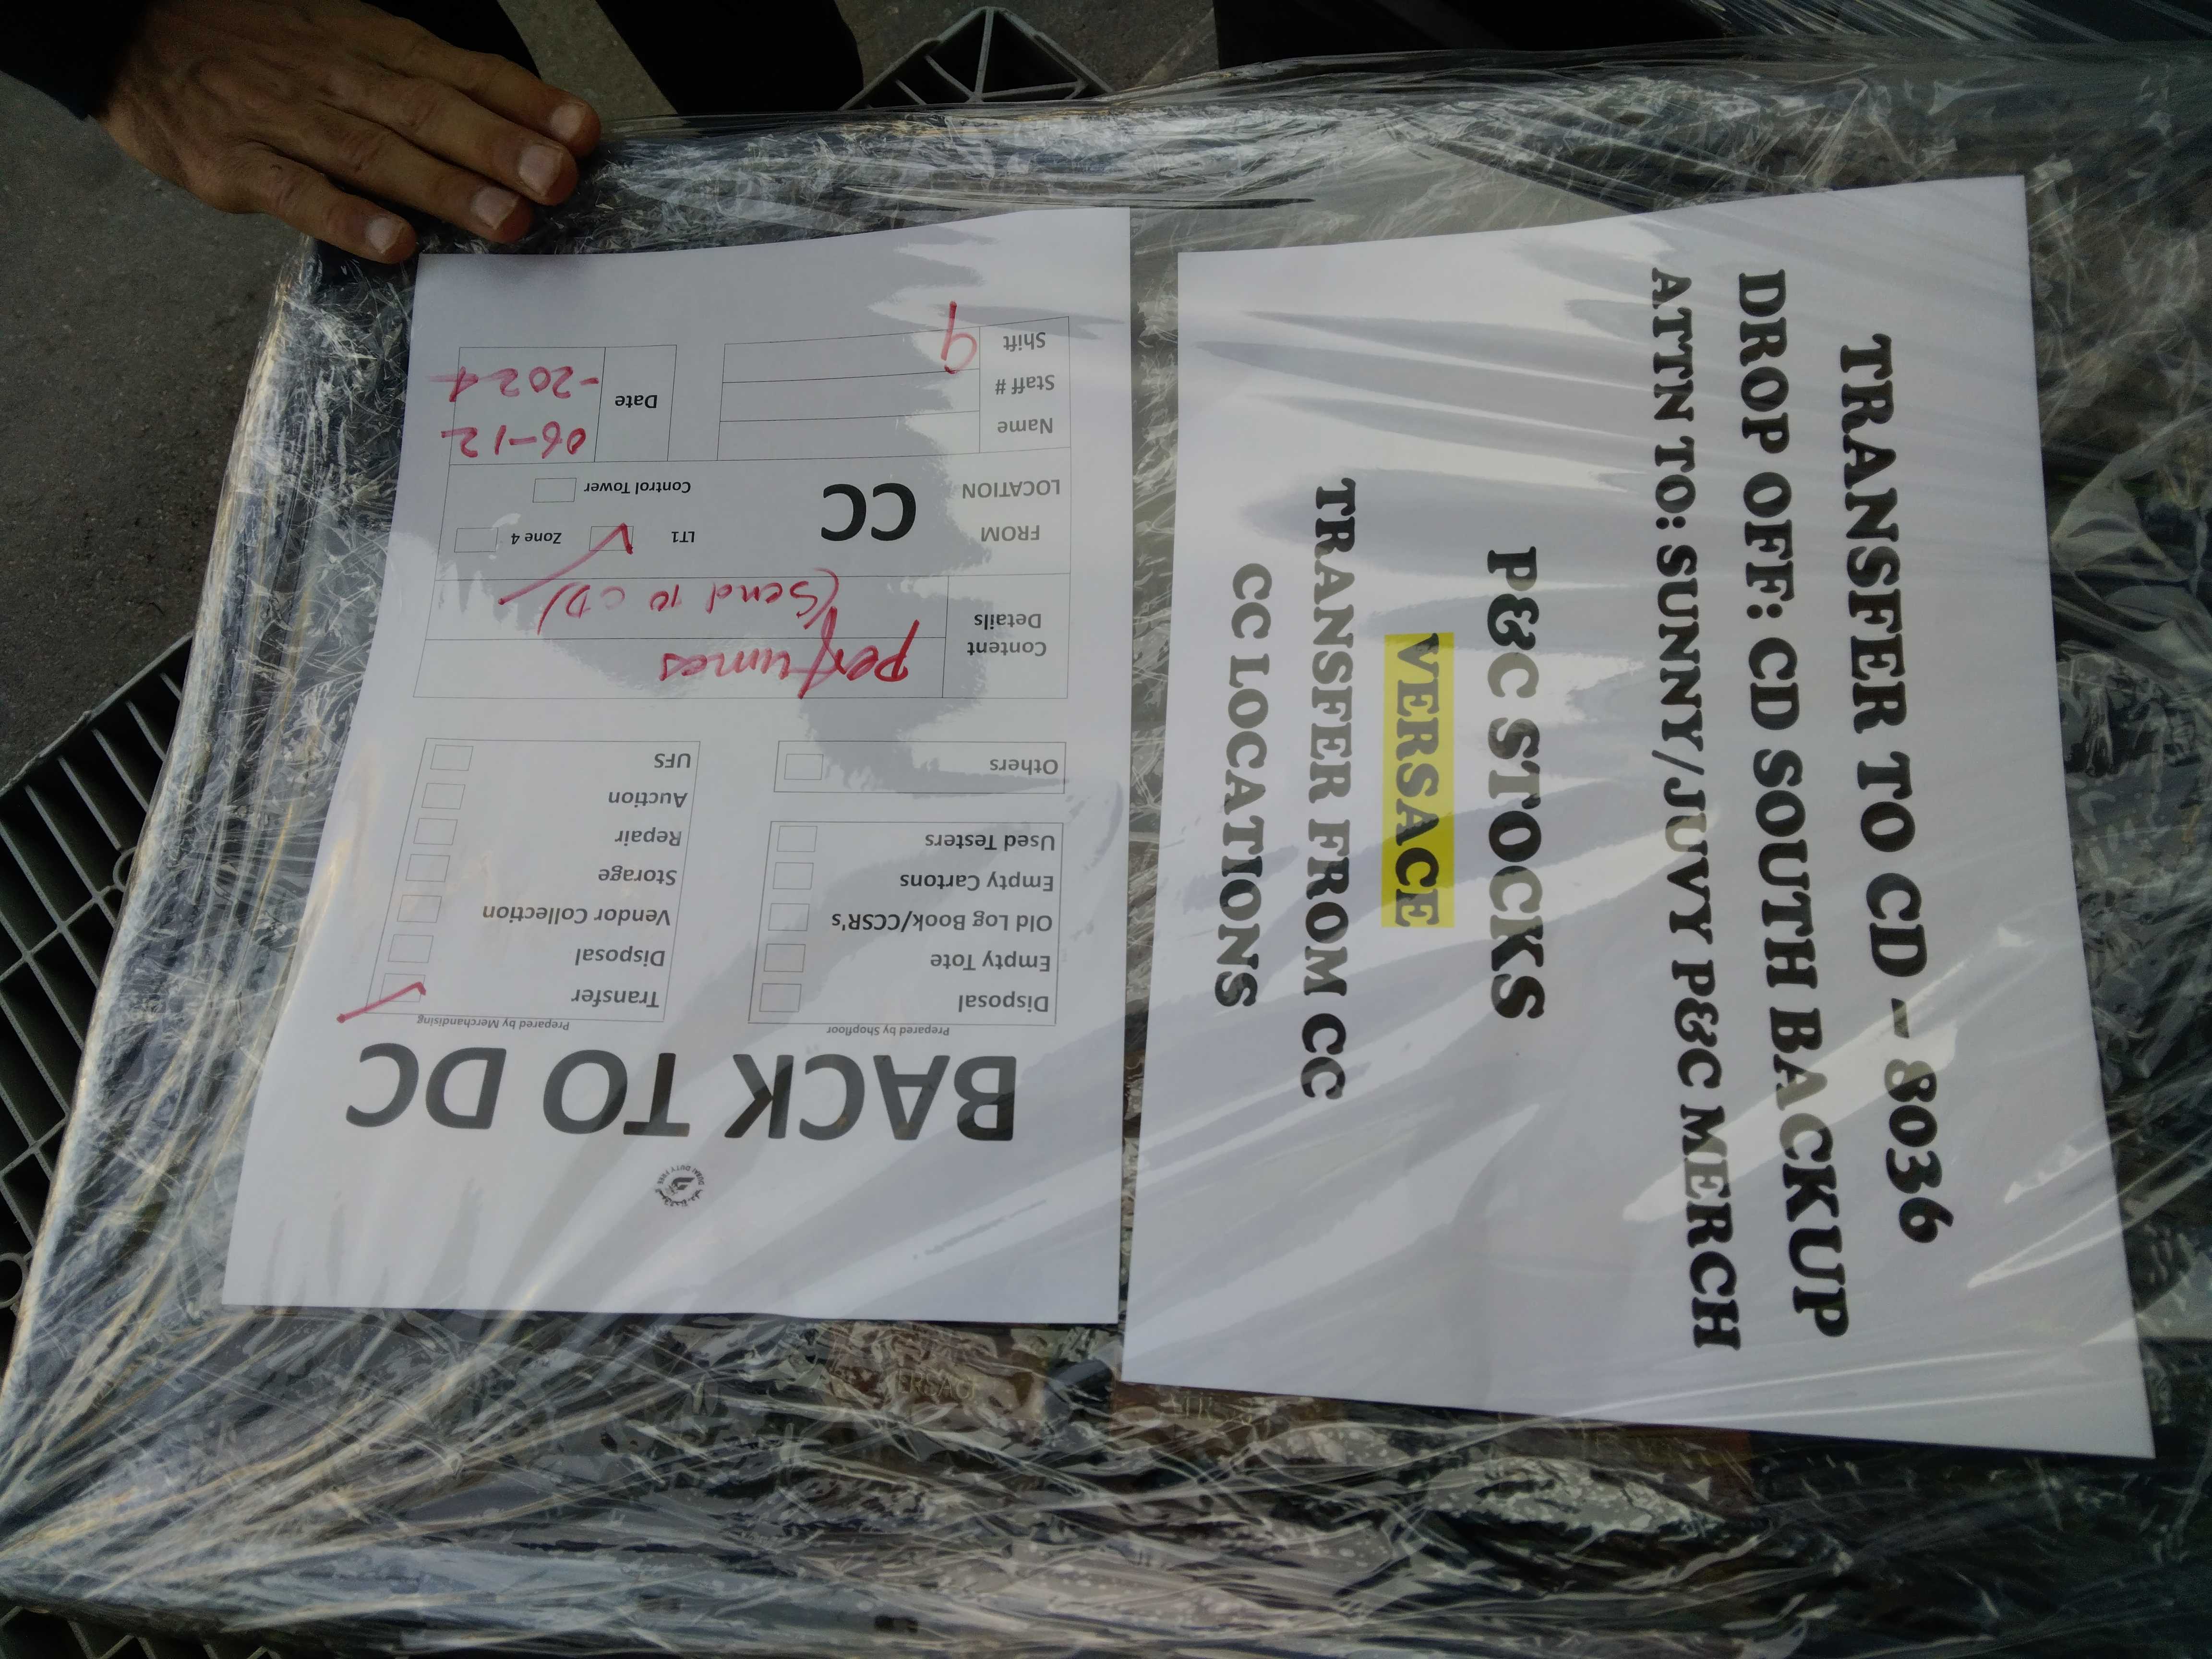 TRANSFER TO CD - 8036
DROP OFF: CD SOUTH BACKUP
ATTN TO: SUNNY/JUVY P&C MERCH
P&C STOCKS
VERSACE
TRANSFER FROM CC
CC LOCATIONS
DUBAI DUTY FREE
BACK TO DC
Prepared by Shopfloor
Disposal
Empty Tote
Old Log Book/CCSR's
Empty Cartons
Used Testers
Others
Prepared by Merchandising
Transfer
Disposal
Vendor Collection
Storage
Repair
Auction
UFS
Content Details
Perfumes
(Send to CD)
FROM LOCATION
CC
LT1
Zone 4
Control Tower
Name
Staff #
Shift
9
Date
06-12
-2024
VERSACE